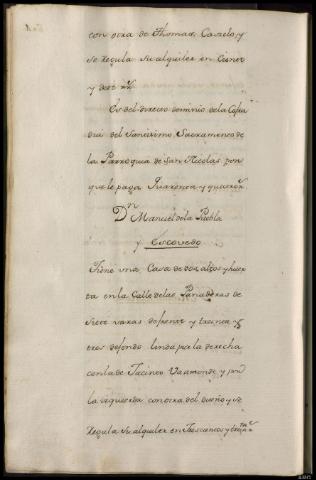 con otra de Thomas Caselo, y
se regula su alquiler en Cient
y doce rs.
Es del directo dominio de la Cofra
dia del Santisimo Sacramento de
la Parroquia de San Nicolas, por
que le paga Quarenta y quatro rs.
Dn Manuel de la Puebla
y Escovedo
Tiene una Casa de dos altos y huer
ta en la Calle de las Panaderas de
siete varas de frente y treinta y
tres de fondo linda por la derecha
con la de Jacinto Vaamonde, y por
la izquierda con otra del dueño y se
regula su alquiler en Trescientos y